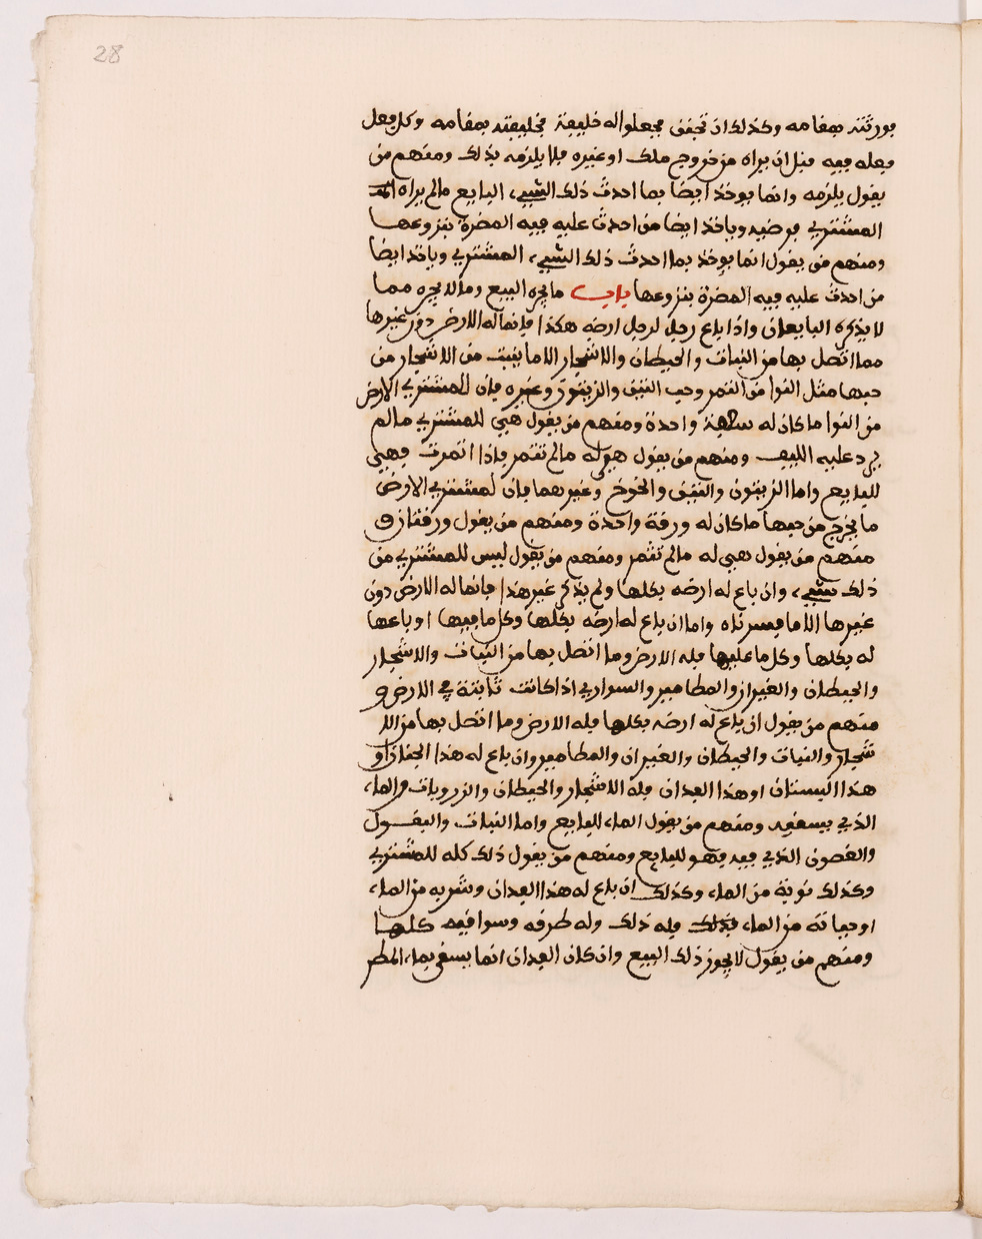 28
بورثته بمقامه وكذلك ان تجنن فجعلوا له خليفة فخليفته بمقامه وكل فعل
فعله فيه قبل ان يراه من خروج ملك او غيره فلا يلزمه بذلك ومنهم من
يقول يلزمه وانما يوخذ ايضا بما احدث ذلك الشيء البايع مالم يراه
المشتري فرضيه وياخذ ايضا من احدث عليه فيه المضرة بنزوعها
ومنهم من يقول انما يوخذ بما احدث ذلك الشيء المشتري وياخذ ايضا
من احدث عليه فيه المضرة بنزوعها باب ما يجره البيع وما لا يجره مما
لا يذكره البايعان واذا باع رجل لرجل ارضه هكذا فانما له الارض دون غيرها
مما اتصل بها من النبات والحيطان والاشجار الا ما ينبت من الاشجار من
حبها مثل النوا من التمر وحب التين والزيتون وغيره فان للمشتري الارض
من النوا ما كان له واحدة ومنهم من يقول هي للمشتري مالم
يرد عليه الليف ومنهم من يقول هو له مالم تثمر فاذا اثمرت فهي
للبايع واما الزيتون والتين والخوخ وغيرهما فان لمشتري الارض
ما يخرج من حبها ما كان له ورقة واحدة ومنهم من يقول ورقتان و
منهم من يقول هي له مالم تثمر ومنهم من يقول ليس للمشتري من
ذلك شيء وان باع له ارضه بكلها ولم يذكر غير هذا فانما له الارض دون
غيرها الا ما فسرناه واما ان باع له ارضه بكلها وكل ما فيها او باعها
له بكلها وكل ما عليها فله الارض وما اتصل بها من النبات والاشجار
والحيطان والغيران والمطامير والسواري اذا كانت ثابتة في الارض و
منهم من يقول ان باع له ارضه بكلها فله الارض وما اتصل بها من الا
شجار والنبات والحيطان والغيران والمطامير وان باع له هذا الجنان او
هذا البستان او هذا الفدان فله الاشجار والحيطان والزروبات والماء
الذي يسقيه ومنهم من يقول الماء للبايع واما النبات والبقول
والغصون الذي فيه فهو للبايع ومنهم من يقول ذلك كله للمشتري
وكذلك نوبة من الماء وكذلك ان باع له هذا الفدان وشربه من الماء
او حياته من الماء فله ذلك وله طرقه وسواقيه كلها
ومنهم من يقول لا يجوز ذلك البيع وان كان الفدان انما يسقى بماء المطر